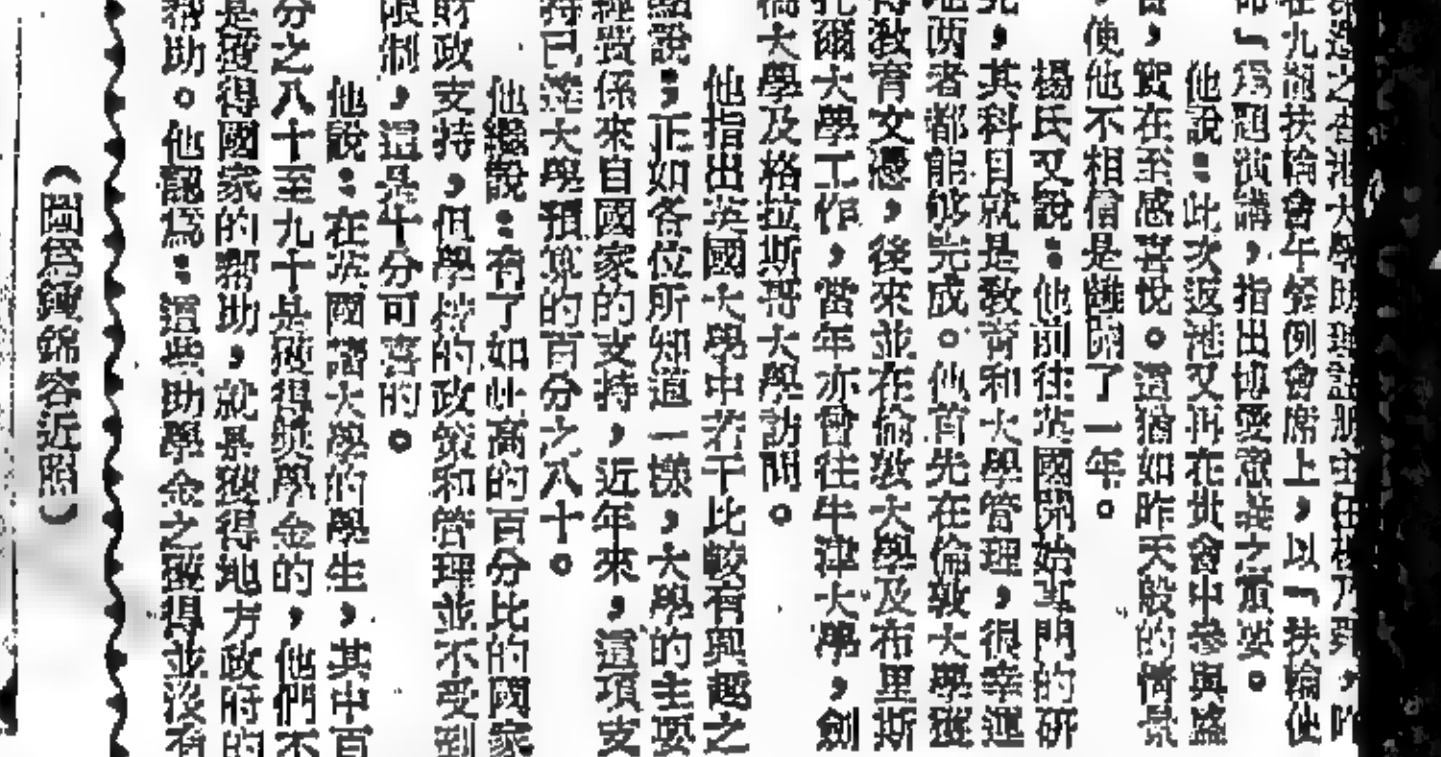 在九龍扶輪會午餐例會席上，以「扶輪使
命」爲題演講，指出博愛意義之重要。
他說：此次返港又再在此會中參與盛
會，實在至感喜悅。這猶如昨天般的情景
，使他不相信是離開了一年。
楊氏又說：他前往英國開始專門的研
究，其科目就是敎育和大學管理，很幸運
地兩者都能够完成。他首先在倫敦大學獲
得敎育文憑，後來並在倫敦大學及布里斯
托爾大學工作，當年亦曾往牛津大學，劍
橋大學及格拉斯哥大學訪問。
他指出英國大學中若干比較有興趣之
點說；正如各位所知道一樣，大學的主要
經費係來自國家的支持，近年來，這項支
持已達大學預算的百分之八十。
他繼說：有了如此高的百分比的國家
財政支持，但學校的政策和管理並不受到
限制，這是十分可喜的。
他說：在英國諸大學的學生，其中百
分之八十至九十是獲得獎學金的，他們不
是獲得國家的幫助，就是獲得地方政府的
幫助。他認爲：這些助學金之獲得並沒有
（圖爲鍾錦容近照）